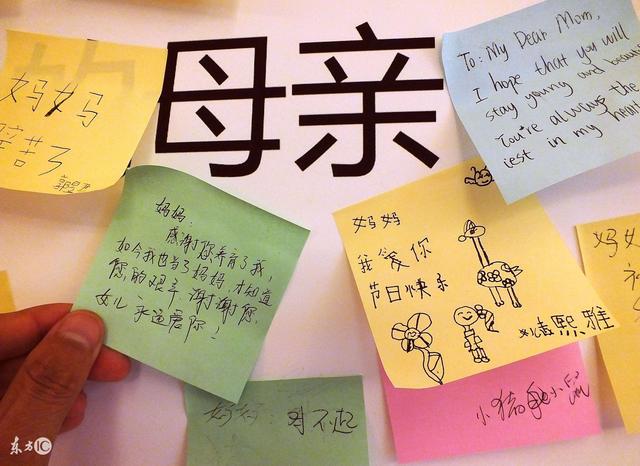 母亲
妈妈
辛苦了
To: My Dear Mom,
I hope that you will
stay young and
You're always the
in my
妈妈,
感谢您养育了我,
如今我也当了妈妈,才知道
您的艰辛,谢谢您,
女儿永远爱你!
妈妈
我爱你
节日快乐
女儿熙雅
妈妈
对不起
小猪
东方IC